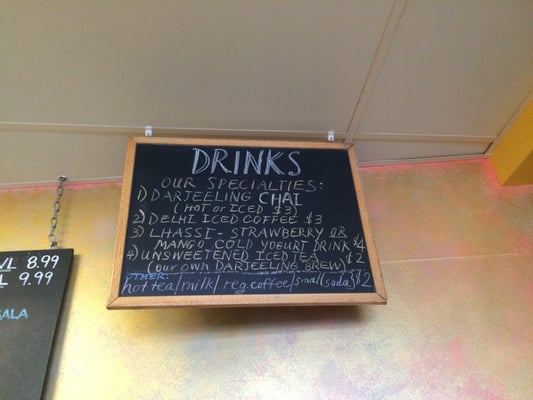 DRINKS
OUR SPECIALTIES:
1) DARJEELING CHAI
(HOT OR ICED $3)
2) DELHI ICED COFFEE $3
3) LHASSI - STRAWBERRY OR
MANGO COLD YOGURT DRINK $4
4) UNSWEETENED ICED TEA $2
(OUR OWN DARJEELING BREW)
OTHER:
hot tea/milk/reg.coffee/small soda $2
VL 8.99
L 9.99
ALA